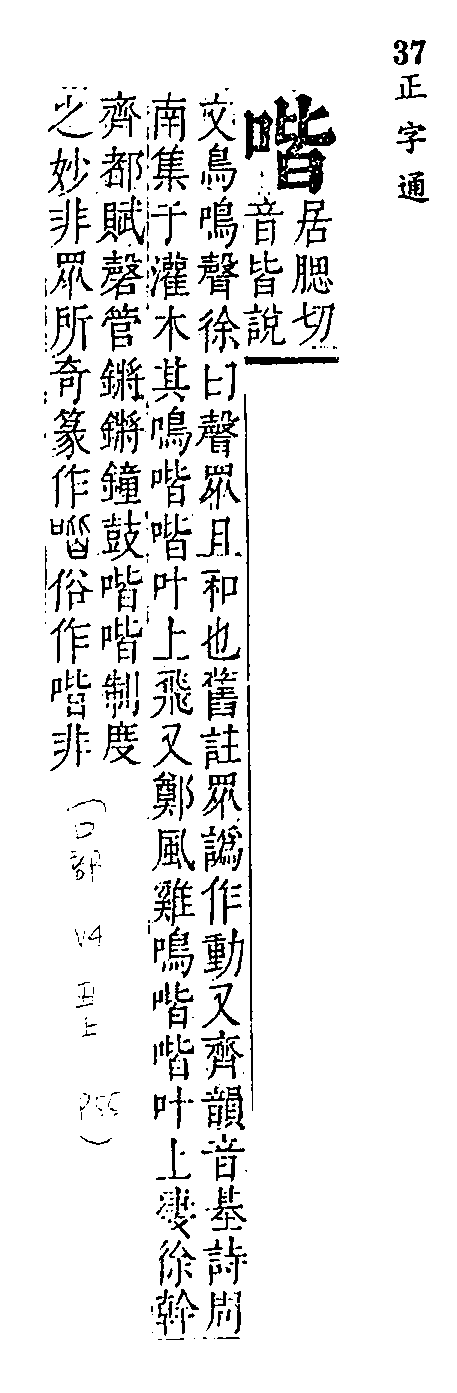 37 正字通
喈
居腮切
音皆說
文鳥鳴聲徐曰聲眾且和也舊註眾譌作動又齊韻音基詩周
南集于灌木其鳴喈喈叶上飛又鄭風雞鳴喈喈叶上淒徐幹
齊都賦磬管鏘鏘鐘鼓喈喈制度
之妙非眾所奇篆作俗作喈非
(口部 V4 丑上 P55)